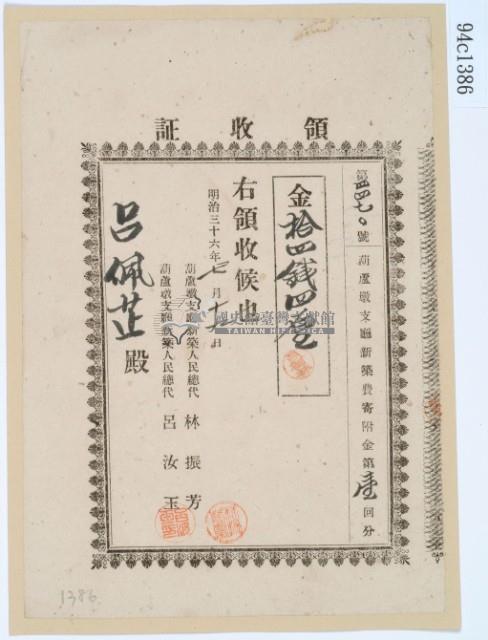 94c1386
領收証
第四四七〇號 葫蘆墩支廳新築費寄附金第壹回分
金拾四錢四厘
右領收候也
明治三十六年七月十六日
葫蘆墩支廳新築人民總代 林振芳
葫蘆墩支廳新築人民總代 呂汝玉
呂佩芷殿
國史館臺灣文獻館
TAIWAN HISTORICA
1386